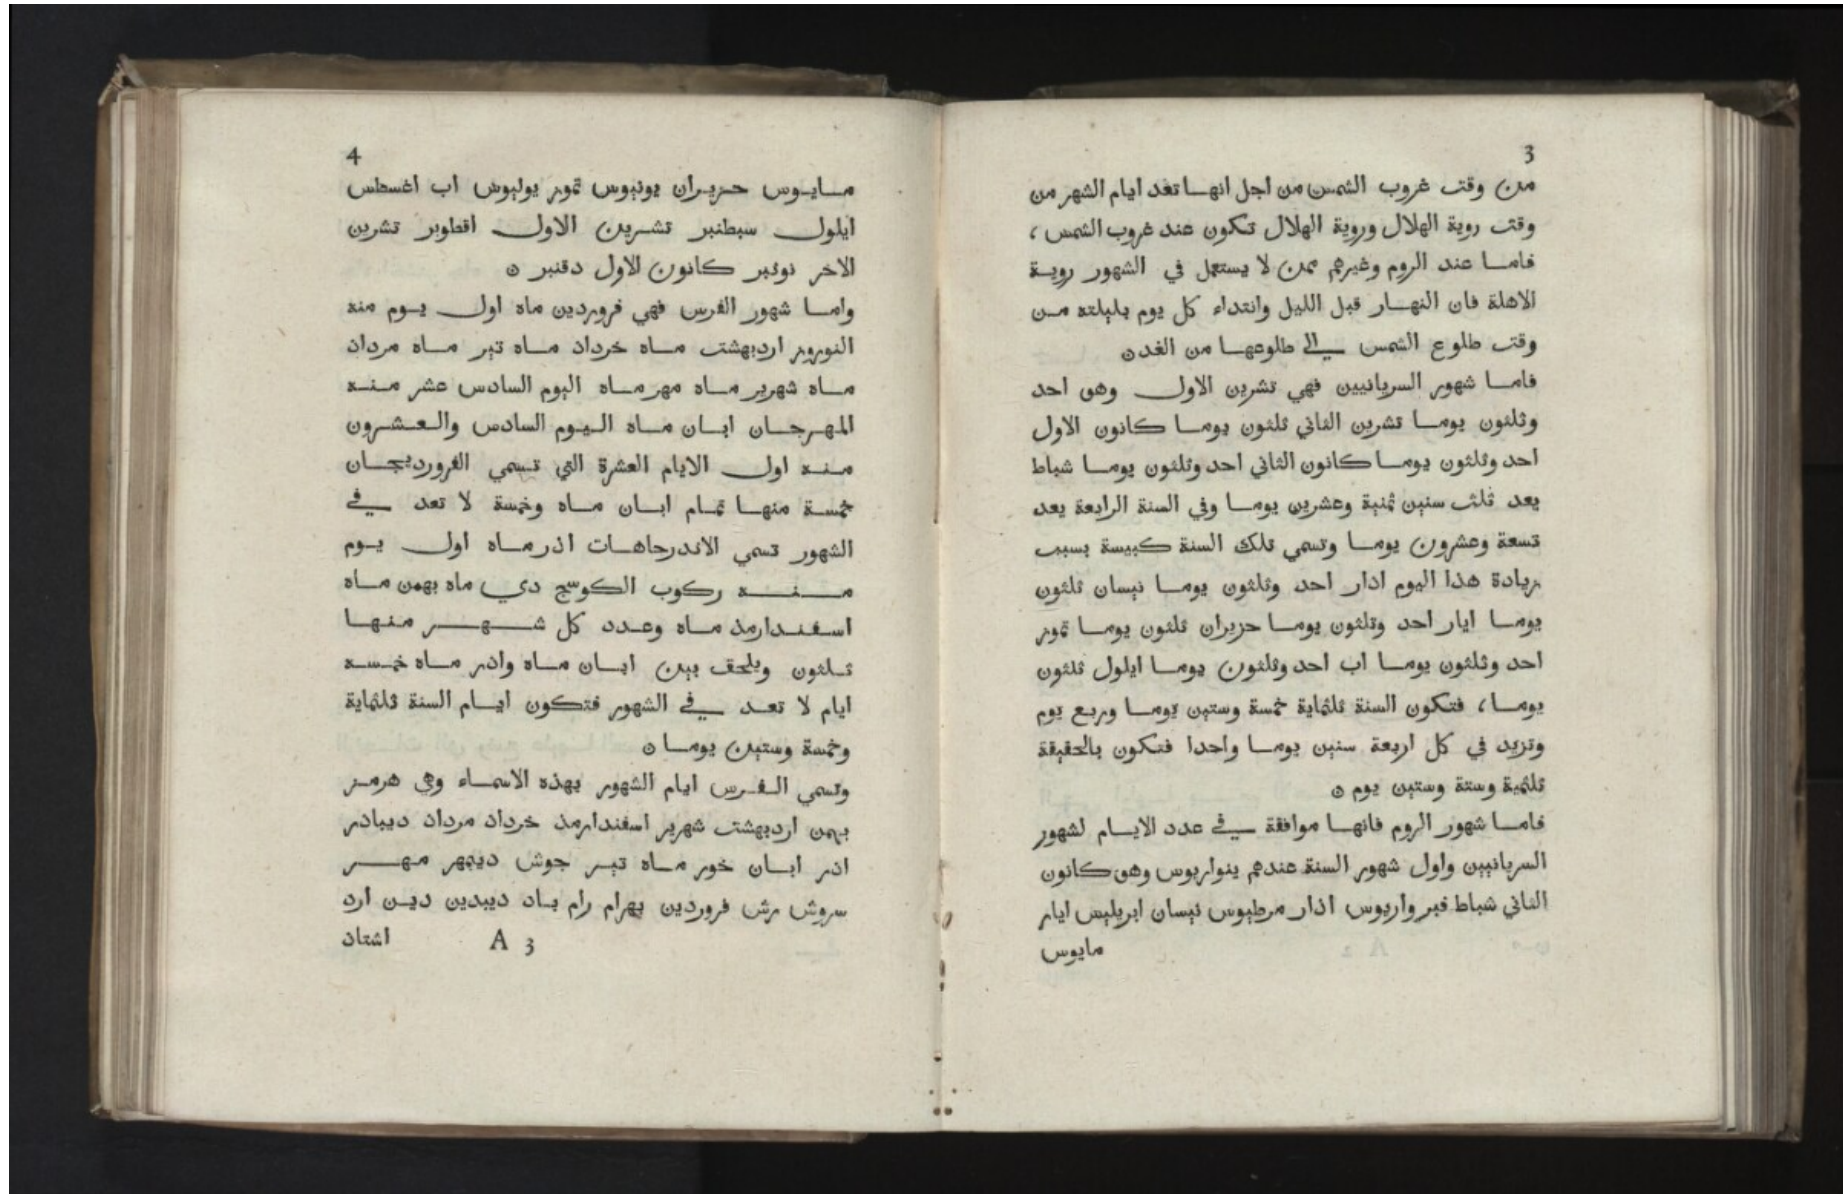 3
من وقت غروب الشمس من اجل انها تعد ايام الشهر من
وقت روية الهلال وروية الهلال تكون عند غروب الشمس ،
فاما عند الروم وغيرهم ممن لا يستعمل في الشهور روية
الاهلة فان النهار قبل الليل وانتداء كل يوم بليلته من
وقت طلوع الشمس الي طلوعها من الغد ن
فاما شهور السريانيين فهي تشرين الاول وهو احد
وثلثون يوما تشرين الثاني ثلثون يوما كانون الاول
احد وثلثون يوما كانون الثاني احد وثلثون يوما شباط
يعد ثلث سنين ثمنية وعشرين يوما وفي السنة الرابعة يعد
تسعة وعشرون يوما وتسمي تلك السنة كبيسة بسبب
زيادة هذا اليوم ادار احد وثلثون يوما نيسان ثلثون
يوما ايار احد وثلثون يوما حزيران ثلثون يوما تموز
احد وثلثون يوما اب احد وثلثون يوما ايلول ثلثون
يوما ، فتكون السنة ثلثماية خمسة وستين يوما وربع يوم
وتزيد في كل اربعة سنين يوما واحدا فتكون بالحقيقة
ثلثمية وستة وستين يوم ن
فاما شهور الروم فانها موافقة في عدد الايام لشهور
السريانيين واول شهور السنة عندهم ينواريوس وهو كانون
الثاني شباط فبرواريوس اذار مرطيوس نيسان ابريليس ايار
مايوس
4
مايوس حزيران يونيوس تموز يوليوس اب اغسطس
ايلول سبطنبر تشرين الاول اقطوبر تشرين
الاخر نوئبر كانون الاول دقنبر ن
واما شهور الفرس فهي فروردين ماه اول يوم منه
النوروز اردبهشت ماه خرداد ماه تير ماه مرداد
ماه شهرير ماه مهر ماه اليوم السادس عشر منه
المهرجان ابان ماه اليوم السادس والعشرون
منه اول الايام العشرة التي تسمي الفرورديجان
خمسة منها تمام ابان ماه وخمسة لا تعد في
الشهور تسمي الاندرجاهات اذر ماه اول يوم
منه ركوب الكوسج دي ماه بهمن ماه
اسفندارمذ ماه وعدد كل شهر منها
ثلثون ويلحق بين ابان ماه واذر ماه خمسه
ايام لا تعد في الشهور فتكون ايام السنة ثلثماية
وخمسة وستين يوما ن
وتسمي الفرس ايام الشهور بهذه الاسماء وهي هرمز
بهمن اردبهشت شهرير اسفندارمذ خرداد مرداد ديباذر
اذر ابان خور ماه تير جوش ديبمهر مهر
سروش رش فروردين بهرام رام باد ديبدين دين ارد
A 3 اشتاد